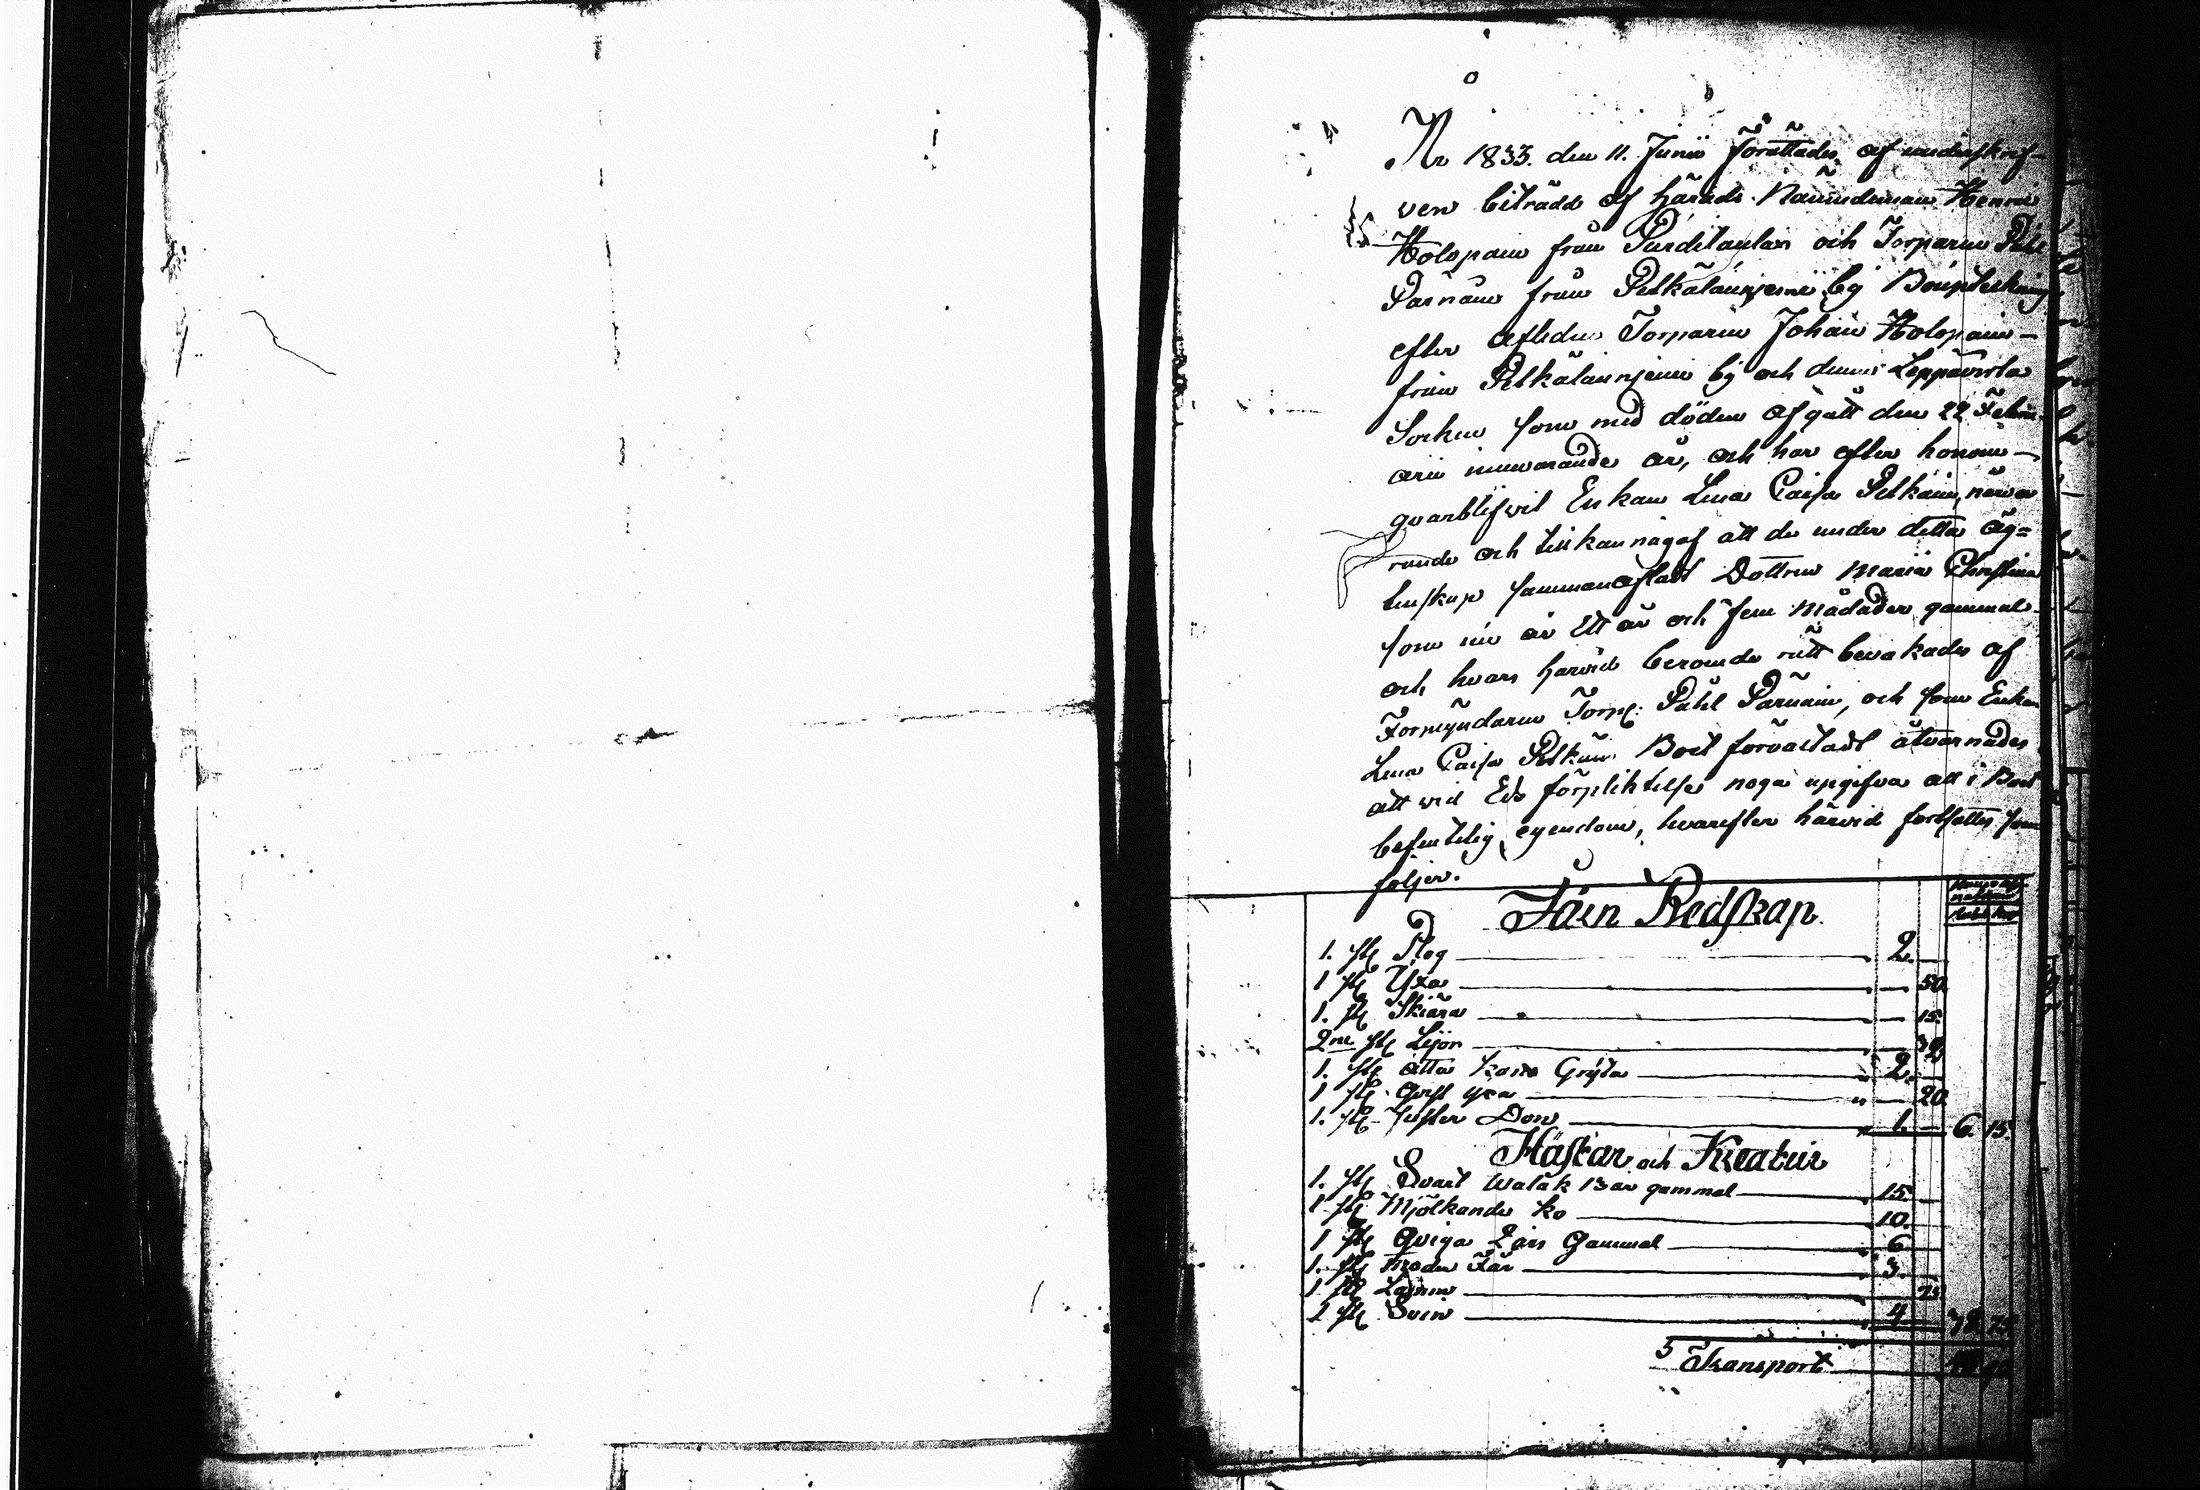 År 1833. den 11. Junii förättades af underskref-
ven biträdd af härads Nämndeman Henric
Holopain från Purdilanlax och Torparen Påhl
Parnain från Pitkälänniemi by Bouptekning
efter afledne Torparen Johan Holopain
från Pitkälänniemi by och denna Leppävirta
Sorken som med döden afgått den 22 Febru-
arii innevarande år, och har efter honom
qvarblifvit Enkan Lena Caisa Pitkäin, närva-
rande och tillkännagaf att de under detta äg=
tenskap sammanafladt Dottren Maria Christina
som nu är Ett år och fem Månader gammal
och hvars härvid beroende rätt bevakades af
Förmyndaren Torp: Påhl Parnain, och som Enkan
Lena Caisa Pitkäin Boet förvaltadt åtvarnades
att vid Eds förpliktelse noga upgifva all i Boet
befintelig egendom, hvarefter härvid fortsattes som
följer.
Järn Redskap
1. st Plog 2. —
1 st Yxa — 50.
1. st Skiära — 15.
2ne st Lijor — 30
1. st åtta kans Gryta 2. —
1 st qvist yxa — 20.
1. st Juster Don 1. — 6. 15.
Hästar och Kreatur
1. st Svart Walak 13 år gammal 15. —
1 st Mjölkande ko 10. —
1 st Qviga 2 års Gammal 6 —
1. st Moder Får 3. —
1 st Lamm 75
1 st Svin 4
Transport